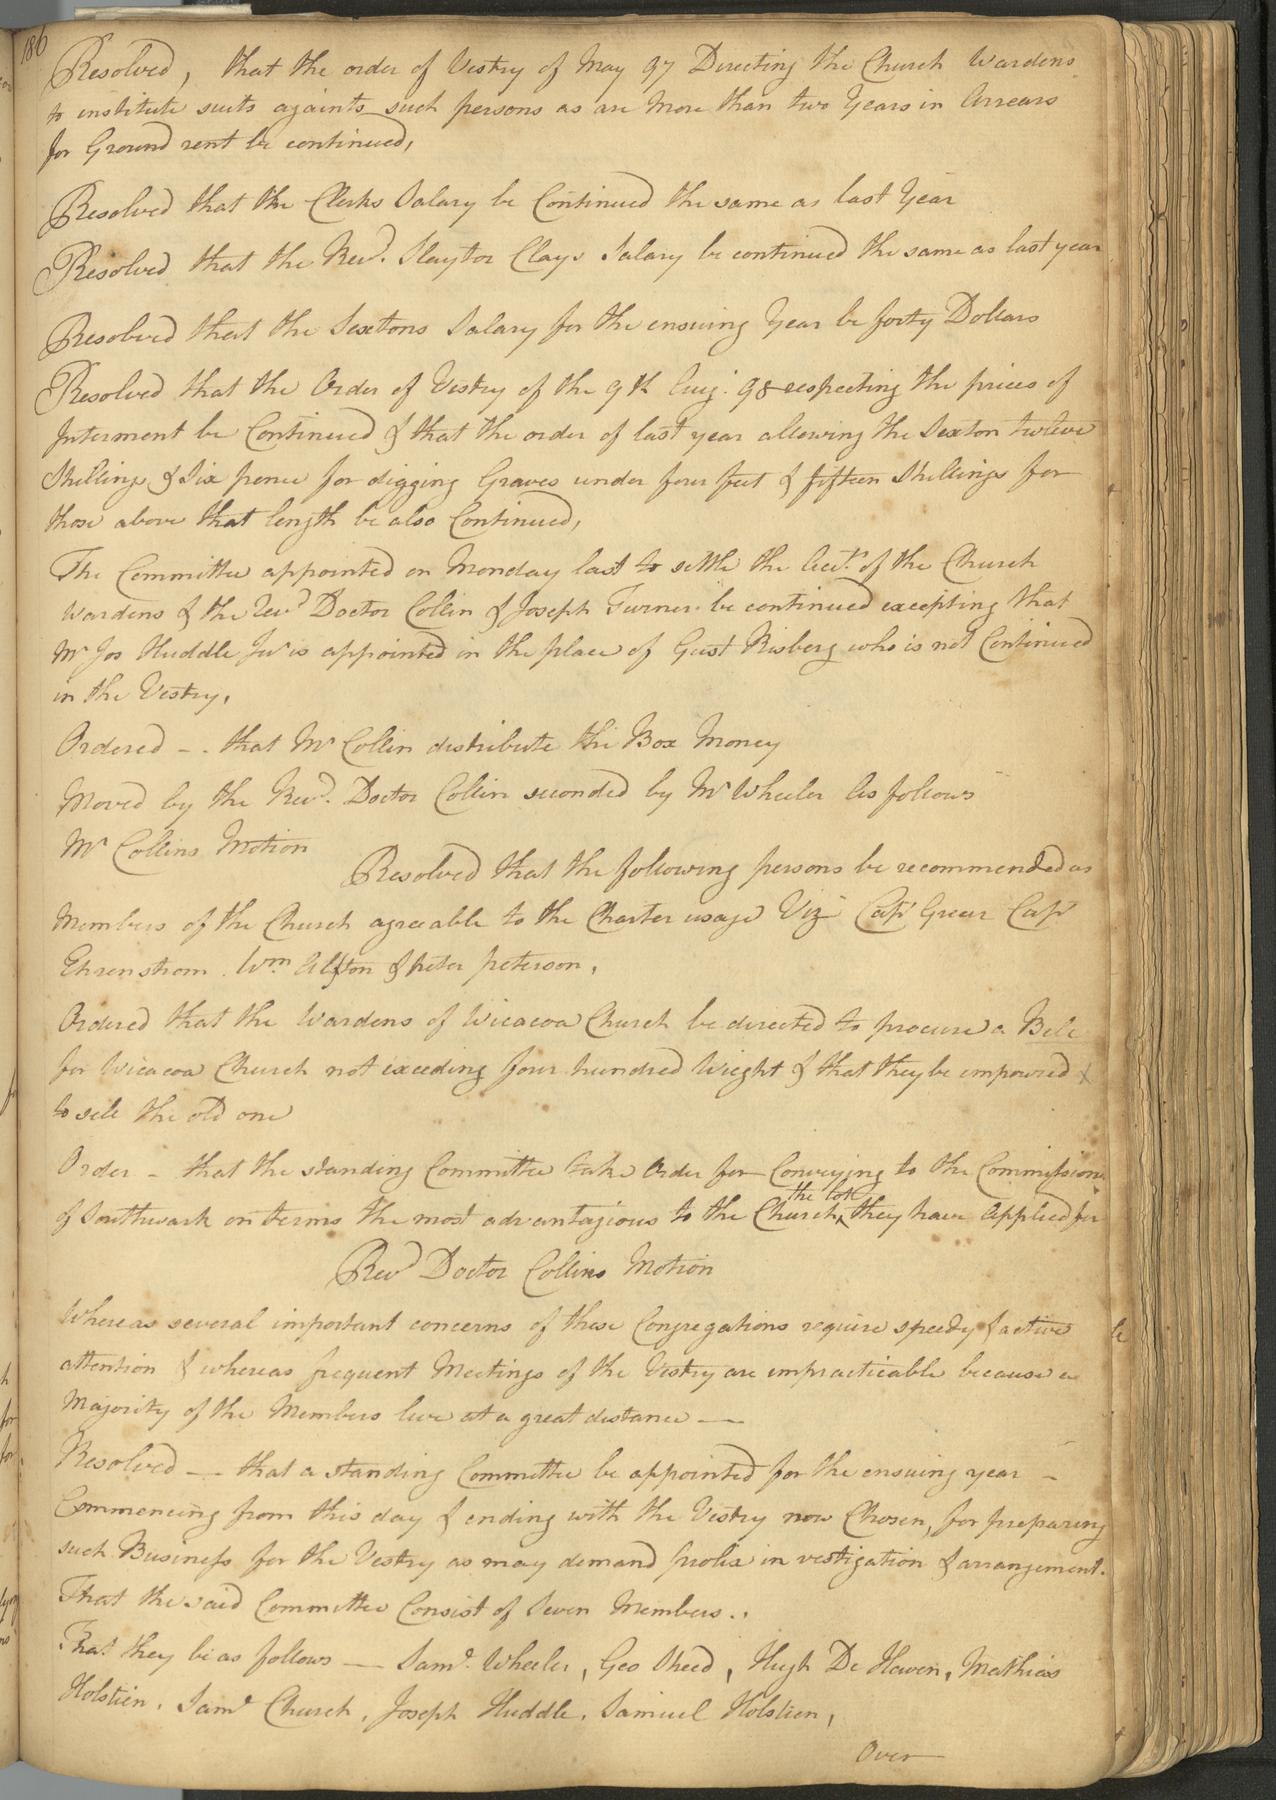 186
Resolved, that the order of Vestry of May 97 Directing the Church Wardens
to institute suits againts such persons as are More than two Years in Arrears
for Ground rent be continued,
Resolved that the Clerks Salary be Continued the same as last Year
Resolved that the Revd. Slaytor Clays Salary be continued the same as last year
Resolved that the Sextons Salary for the ensuing Year be forty Dollars
Resolved that the Order of Vestry of the 9th Augt. 98 respecting the prices of
Interment be Continued & that the order of last year allowing the Sexton twelve
Shillings & Six pence for digging Graves under four feet & fifteen Shillings for
those above that length be also Continued,
The Committee appointed on Monday last to settle the Acct. of the Church
Wardens & the Revd Doctor Collin & Joseph Turner be continued excepting that
Mr Jos Huddle Jur is appointed in the place of Gust Risberg who is not Continued
in the Vestry,
Ordered -. that Mr Collin distribute the Box Money
Moved by the Revd. Doctor Collin seconded by Mr Wheeler As follows
Mr Collins Motion
Resolved that the following persons be recommended as
Members of the Church agreeable to the Charter usage Viz Capt Greer Capt
Ehrenstrom Wm Alston & peter peterson,
Ordered that the Wardens of Wicacoa Church be directed to procure a Bell
for Wicacoa Church not exceeding four hundred Wieght & that they be empowred x
to sell the old one
Order - that the standing Committee take Order for Conveying to the Commissions
of Southwark on terms the most advantagious to the Church, ^ the lot they have Applied for
Revd Doctor Collins Motion
Whereas several important concerns of these Congregations require speedy & active
attention & whereas frequent Meetings of the Vestry are impracticable because a
Majority of the Members live at a great distance —
Resolved — that a standing Committee be appointed for the ensuing year -
Commencing from this day & ending with the Vestry now Chosen, for preparing
such Business for the Vestry as may demand prolix investigation & arrangement.
That the said Committee Consist of Seven Members..
That they be as follows — Saml. Wheeler, Geo Skeed, Hugh De Haven, Mathias
Holstien, Saml Church, Joseph Huddle, Samuel Holstien,
Over